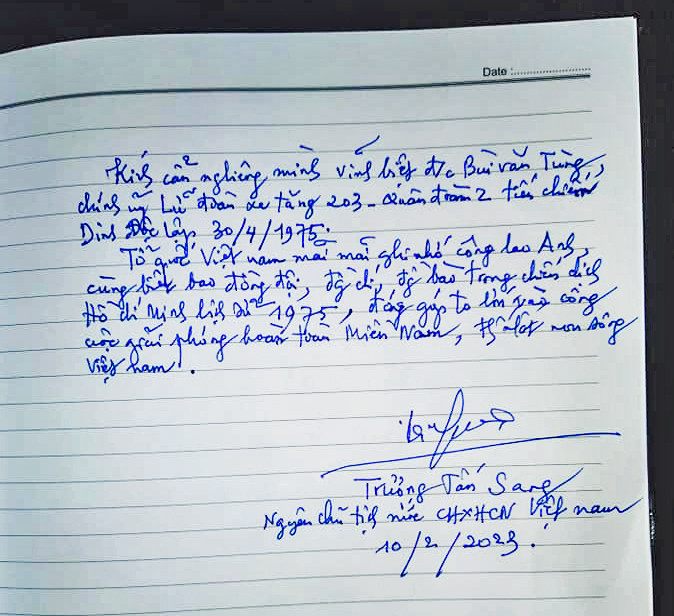 Date :
Kính cẩn nghiêng mình vĩnh biệt đ/c Bùi văn Tùng,
chính uỷ Lữ đoàn xe tăng 203 - Quân đoàn 2 tiến chiếm
Dinh Độc lập 30/4/1975.
Tổ quốc Việt nam mãi mãi ghi nhớ công lao Anh,
cùng biết bao đồng đội, đ/chí, đ/bào trong chiến dịch
Hồ chí Minh lịch sử 1975, đóng góp to lớn vào công
cuộc giải phóng hoàn toàn Miền Nam, thống nhất non sông
Việt nam.
Trương Tấn Sang
Nguyên chủ tịch nước CHXHCN Việt nam
10/2/2023.